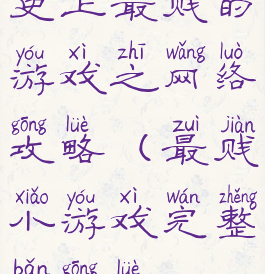 史上最贱的
yóu xì zhī wǎng luò
游戏之网络
gōng lüè zuì jiàn
攻略（最贱
xiǎo yóu xì wán zhěng
小游戏完整
bǎn gōng lüè